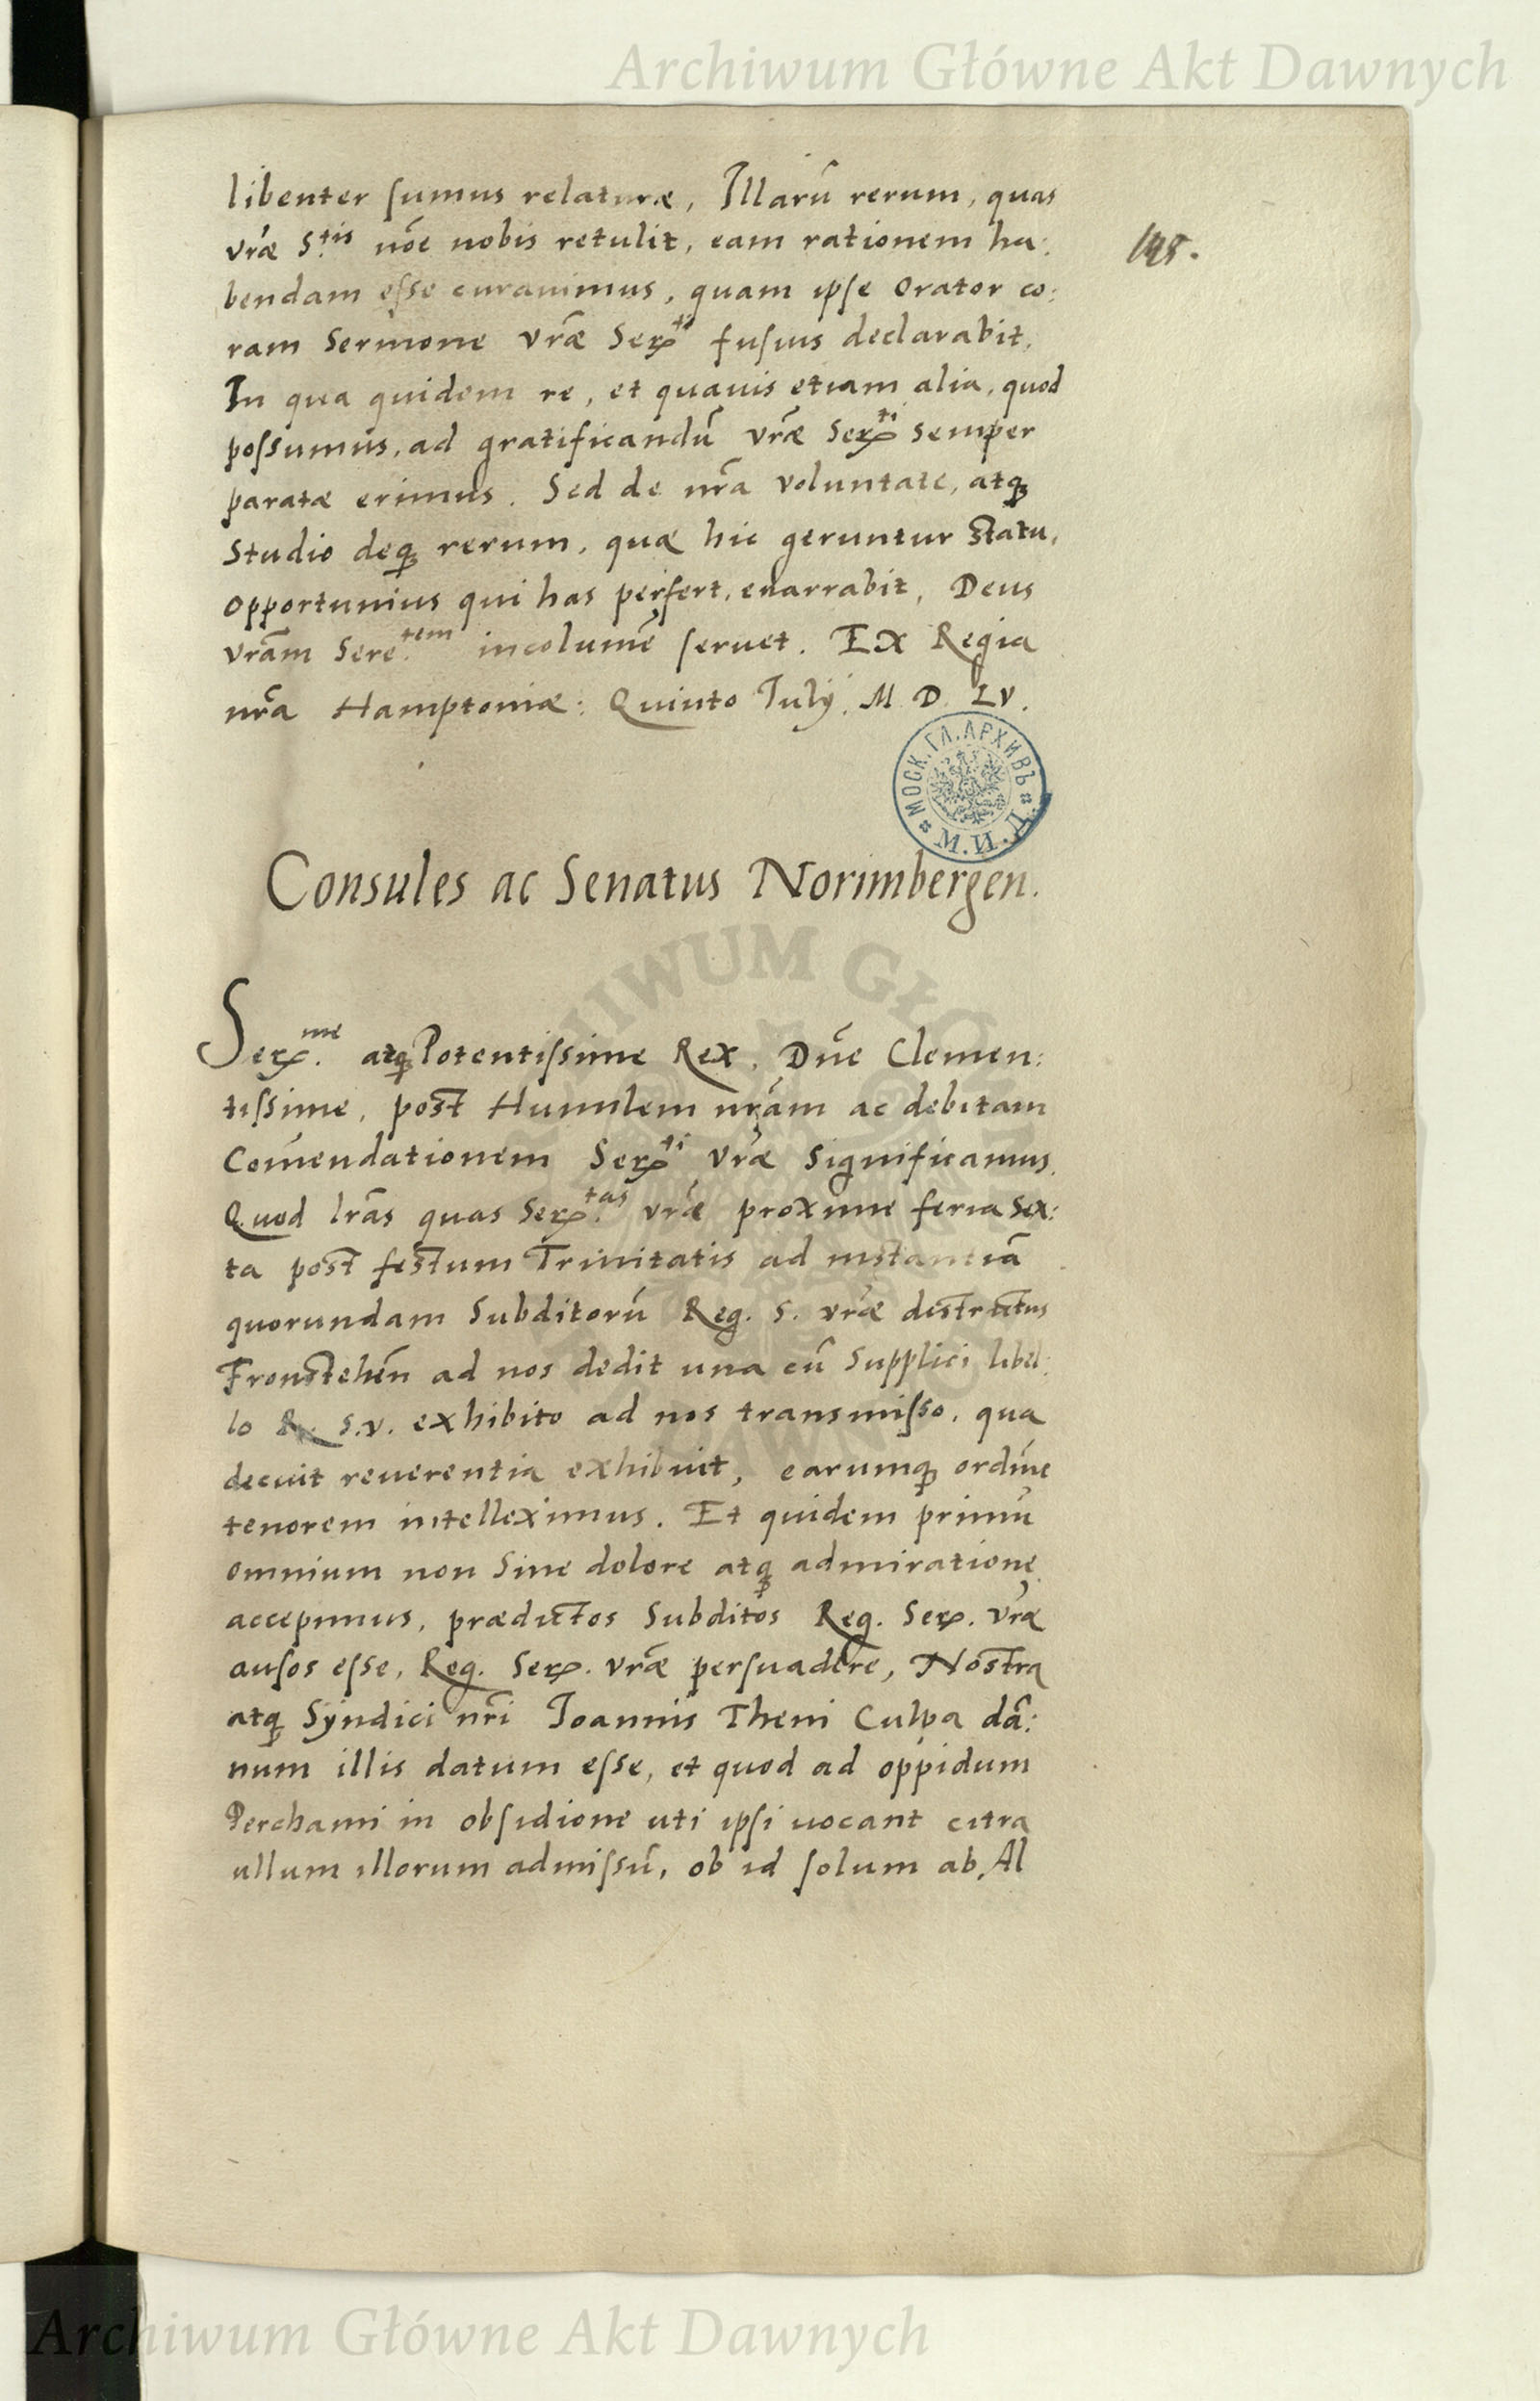 Archiwum Główne Akt Dawnych
libenter sumus relaturæ, Illarū rerum, quas
vr̃æ S.tis nõe nobis retulit, eam rationem ha:
145.
bendam esse curauimus, quam ipse Orator co:
ram Sermone vr̃æ Ser.ti fusius declarabit.
In qua quidem re, et quauis etiam alia, quod
possumus, ad gratificandū vr̃æ Ser.ti semper
paratæ erimus. Sed de nr̃a voluntate, atq
Studio deq rerum, quæ hic geruntur statu,
opportunius qui has perfert, enarrabit, Deus
vr̃am Sere.tem incolumē seruet. Ex Regia
nr̃a Hamptoniæ: Quinto Julÿ. M. D. LV.
МОСК. ГЛ. АРХИВЪ М.И.Д.
Consules ac Senatus Norimbergen.
Ser.me atq Potentissime Rex, Dn̄e Clemen:
tissime, post Humilem nr̃am ac debitam
Com̃endationem Ser.ti vr̃æ Significamus.
Quod lr̃as quas Ser.tas vr̃æ proxime feria Sex:
ta post festum Trinitatis ad instantiā
quorundam Subditorū Reg. S. vr̃æ districtus
Fronstehēn ad nos dedit una cū Supplici libel:
lo R. S.v. exhibito ad nos transmisso, qua
decuit reuerentia exhibuit, earumq ordine
tenorem intelleximus. Et quidem primū
omnium non Sine dolore atq admiratione
accepimus, prædictos Subditos Reg. Ser. vr̃æ
ausos esse, Reg. Ser. vr̃æ persuadere, Nostra
atq Syndici nr̃i Joannis Theni Culpa dā:
num illis datum esse, et quod ad oppidum
Perchami in obsidione uti ipsi uocant citra
ullum illorum admissū, ob id solum ab Al
Archiwum Główne Akt Dawnych